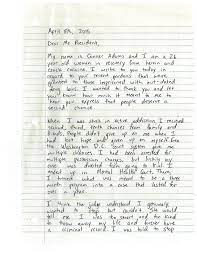 April 8th, 2016
Dear Mr. President,
My name is Adams and I am a 26
year old woman in recovery from heroin and
cocaine I write to you today in
regard to your recent pardons that were
allowed to those imprisoned with out-dated
drug laws. I wanted to thank you and let
you know how much it meant to me to
hear you express that people deserve a
second chance.
When I was stuck in active addiction, I received
second, third, tenth chances from family and
friends. People didn't give up on me when I
had lost hope and given up on myself
the Washington D.C. Court system gave me
multiple chances. I had been arrested for
multiple possession charges, but luckily my
case was diverted from going to trial. I
ended up in Mental Health Court. There,
I what was meant to be a three
month program into a case that lasted for
over a year.
I think the judge understood I genuinely
wanted to stop but couldn't. She would
tell me I was and she to
have my criminal record and
throw away my life. I was told to stop